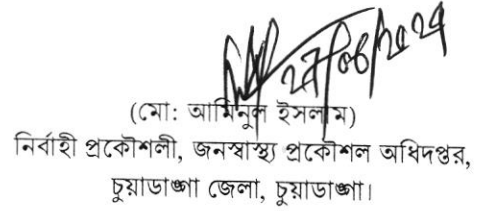 27/06/2024
(মো: আমিনুল ইসলাম)
নির্বাহী প্রকৌশলী, জনস্বাস্থ্য প্রকৌশল অধিদপ্তর,
চুয়াডাঙ্গা জেলা, চুয়াডাঙ্গা।